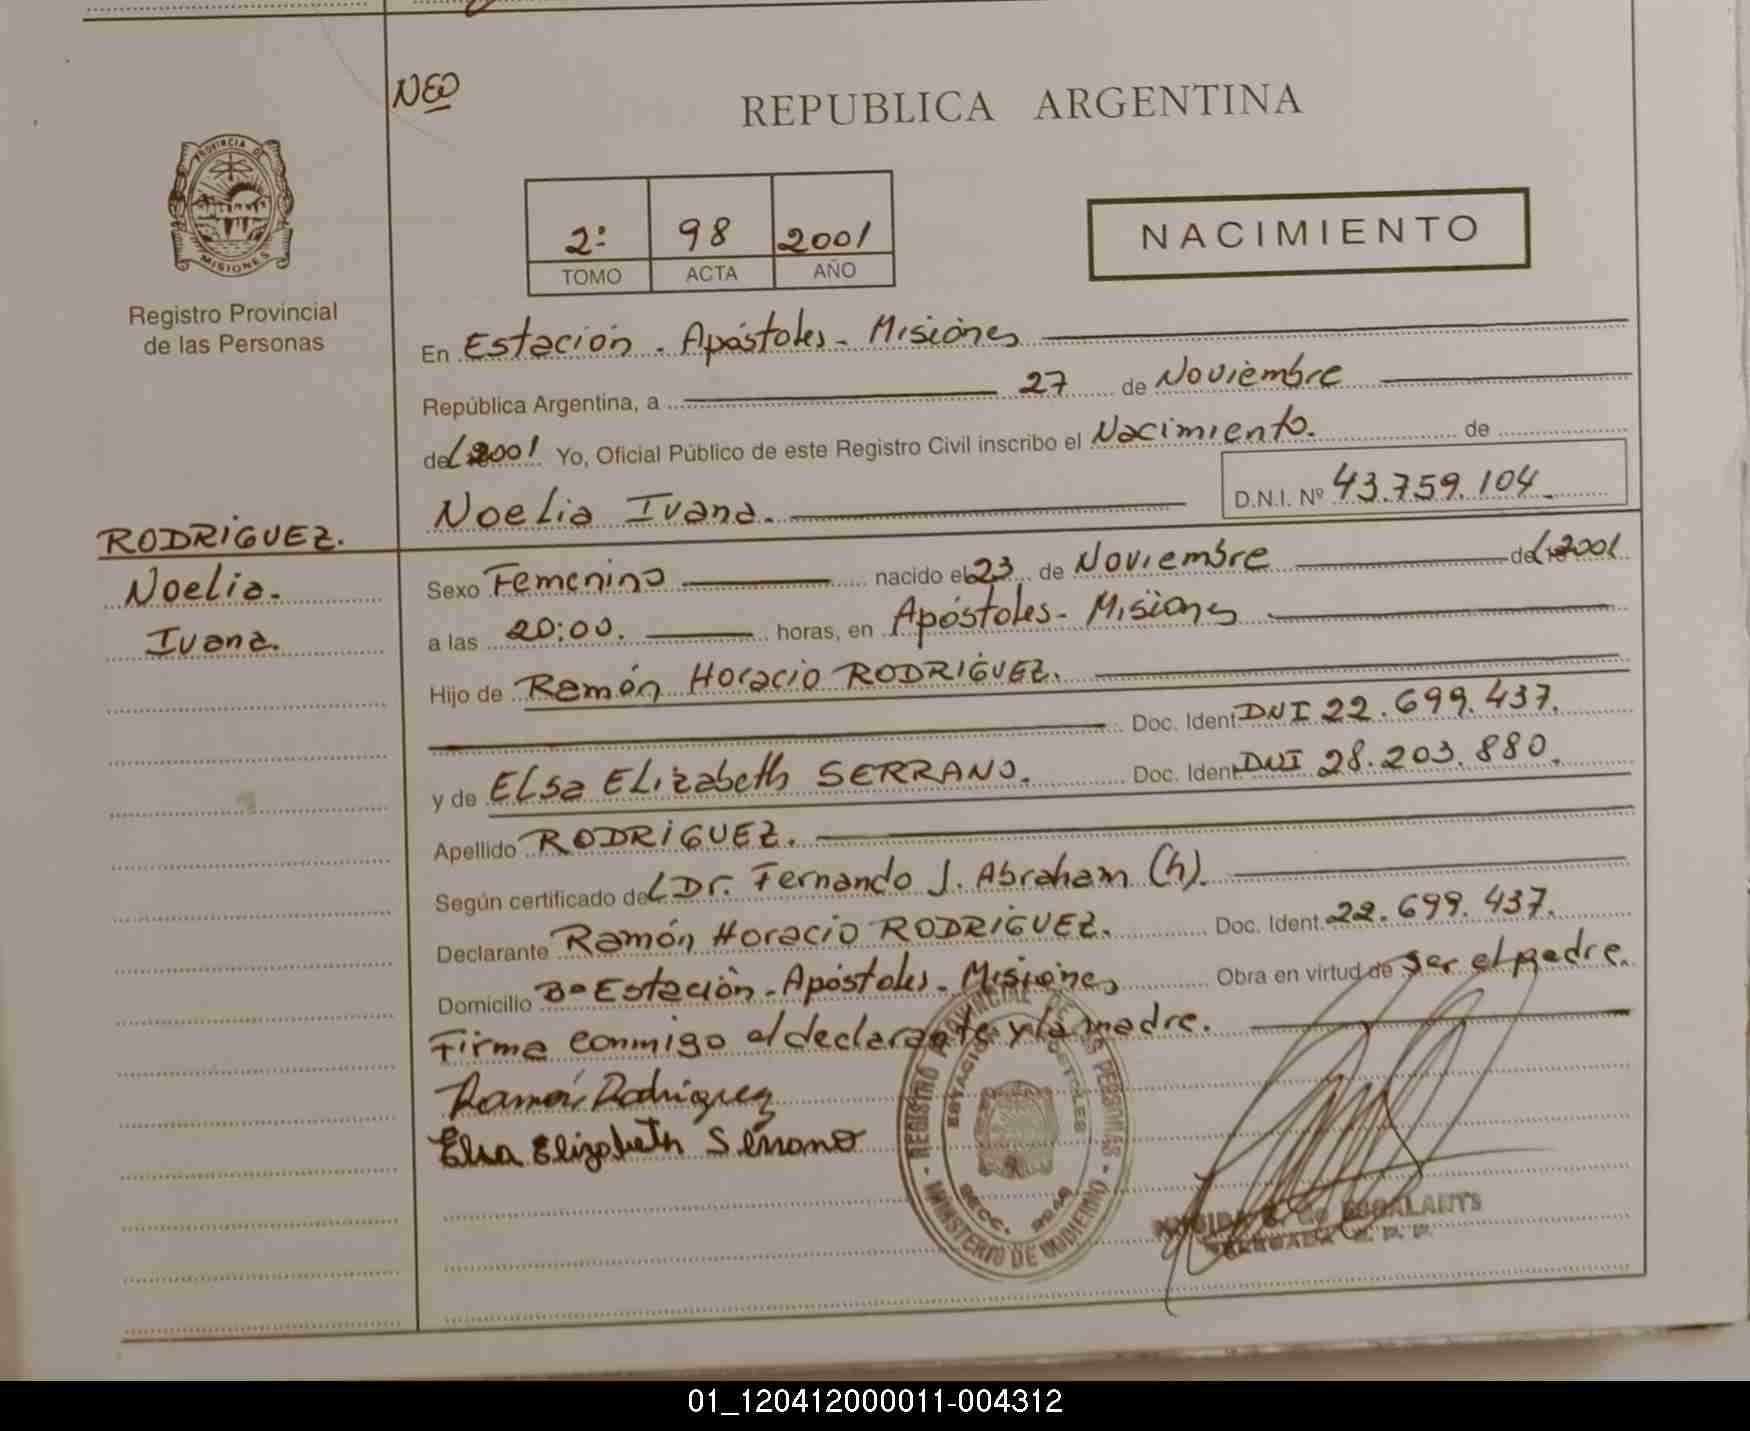 NEO
REPUBLICA ARGENTINA
PROVINCIA DE
MISIONES
Registro Provincial
de las Personas
2º 98 2001
TOMO ACTA AÑO
NACIMIENTO
En Estación - Apóstoles - Misiones
República Argentina, a 27 de Noviembre
del 2001 Yo, Oficial Público de este Registro Civil inscribo el Nacimiento. de
Noelia Ivana. D.N.I. Nº 43.759.104
RODRIGUEZ.
Noelia.
Ivana.
Sexo Femenino nacido el 23 de Noviembre del 2001
a las 20:00. horas, en Apóstoles - Misiones
Hijo de Ramón Horacio RODRIGUEZ.
Doc. Ident DNI 22.699.437.
y de ELsa ELizabeth SERRANO. Doc. Ident DNI 28.203.880.
Apellido RODRIGUEZ.
Según certificado del Dr. Fernando J. Abraham (h).
Declarante Ramón Horacio RODRIGUEZ. Doc. Ident. 22.699.437.
Domicilio Bº Estación - Apóstoles - Misiones Obra en virtud de ser el padre.
Firma conmigo el declarante y la madre.
Ramón Rodriguez
Elsa Elizabeth Serrano
REGISTRO PROVINCIAL DE LAS PERSONAS
MINISTERIO DE GOBIERNO